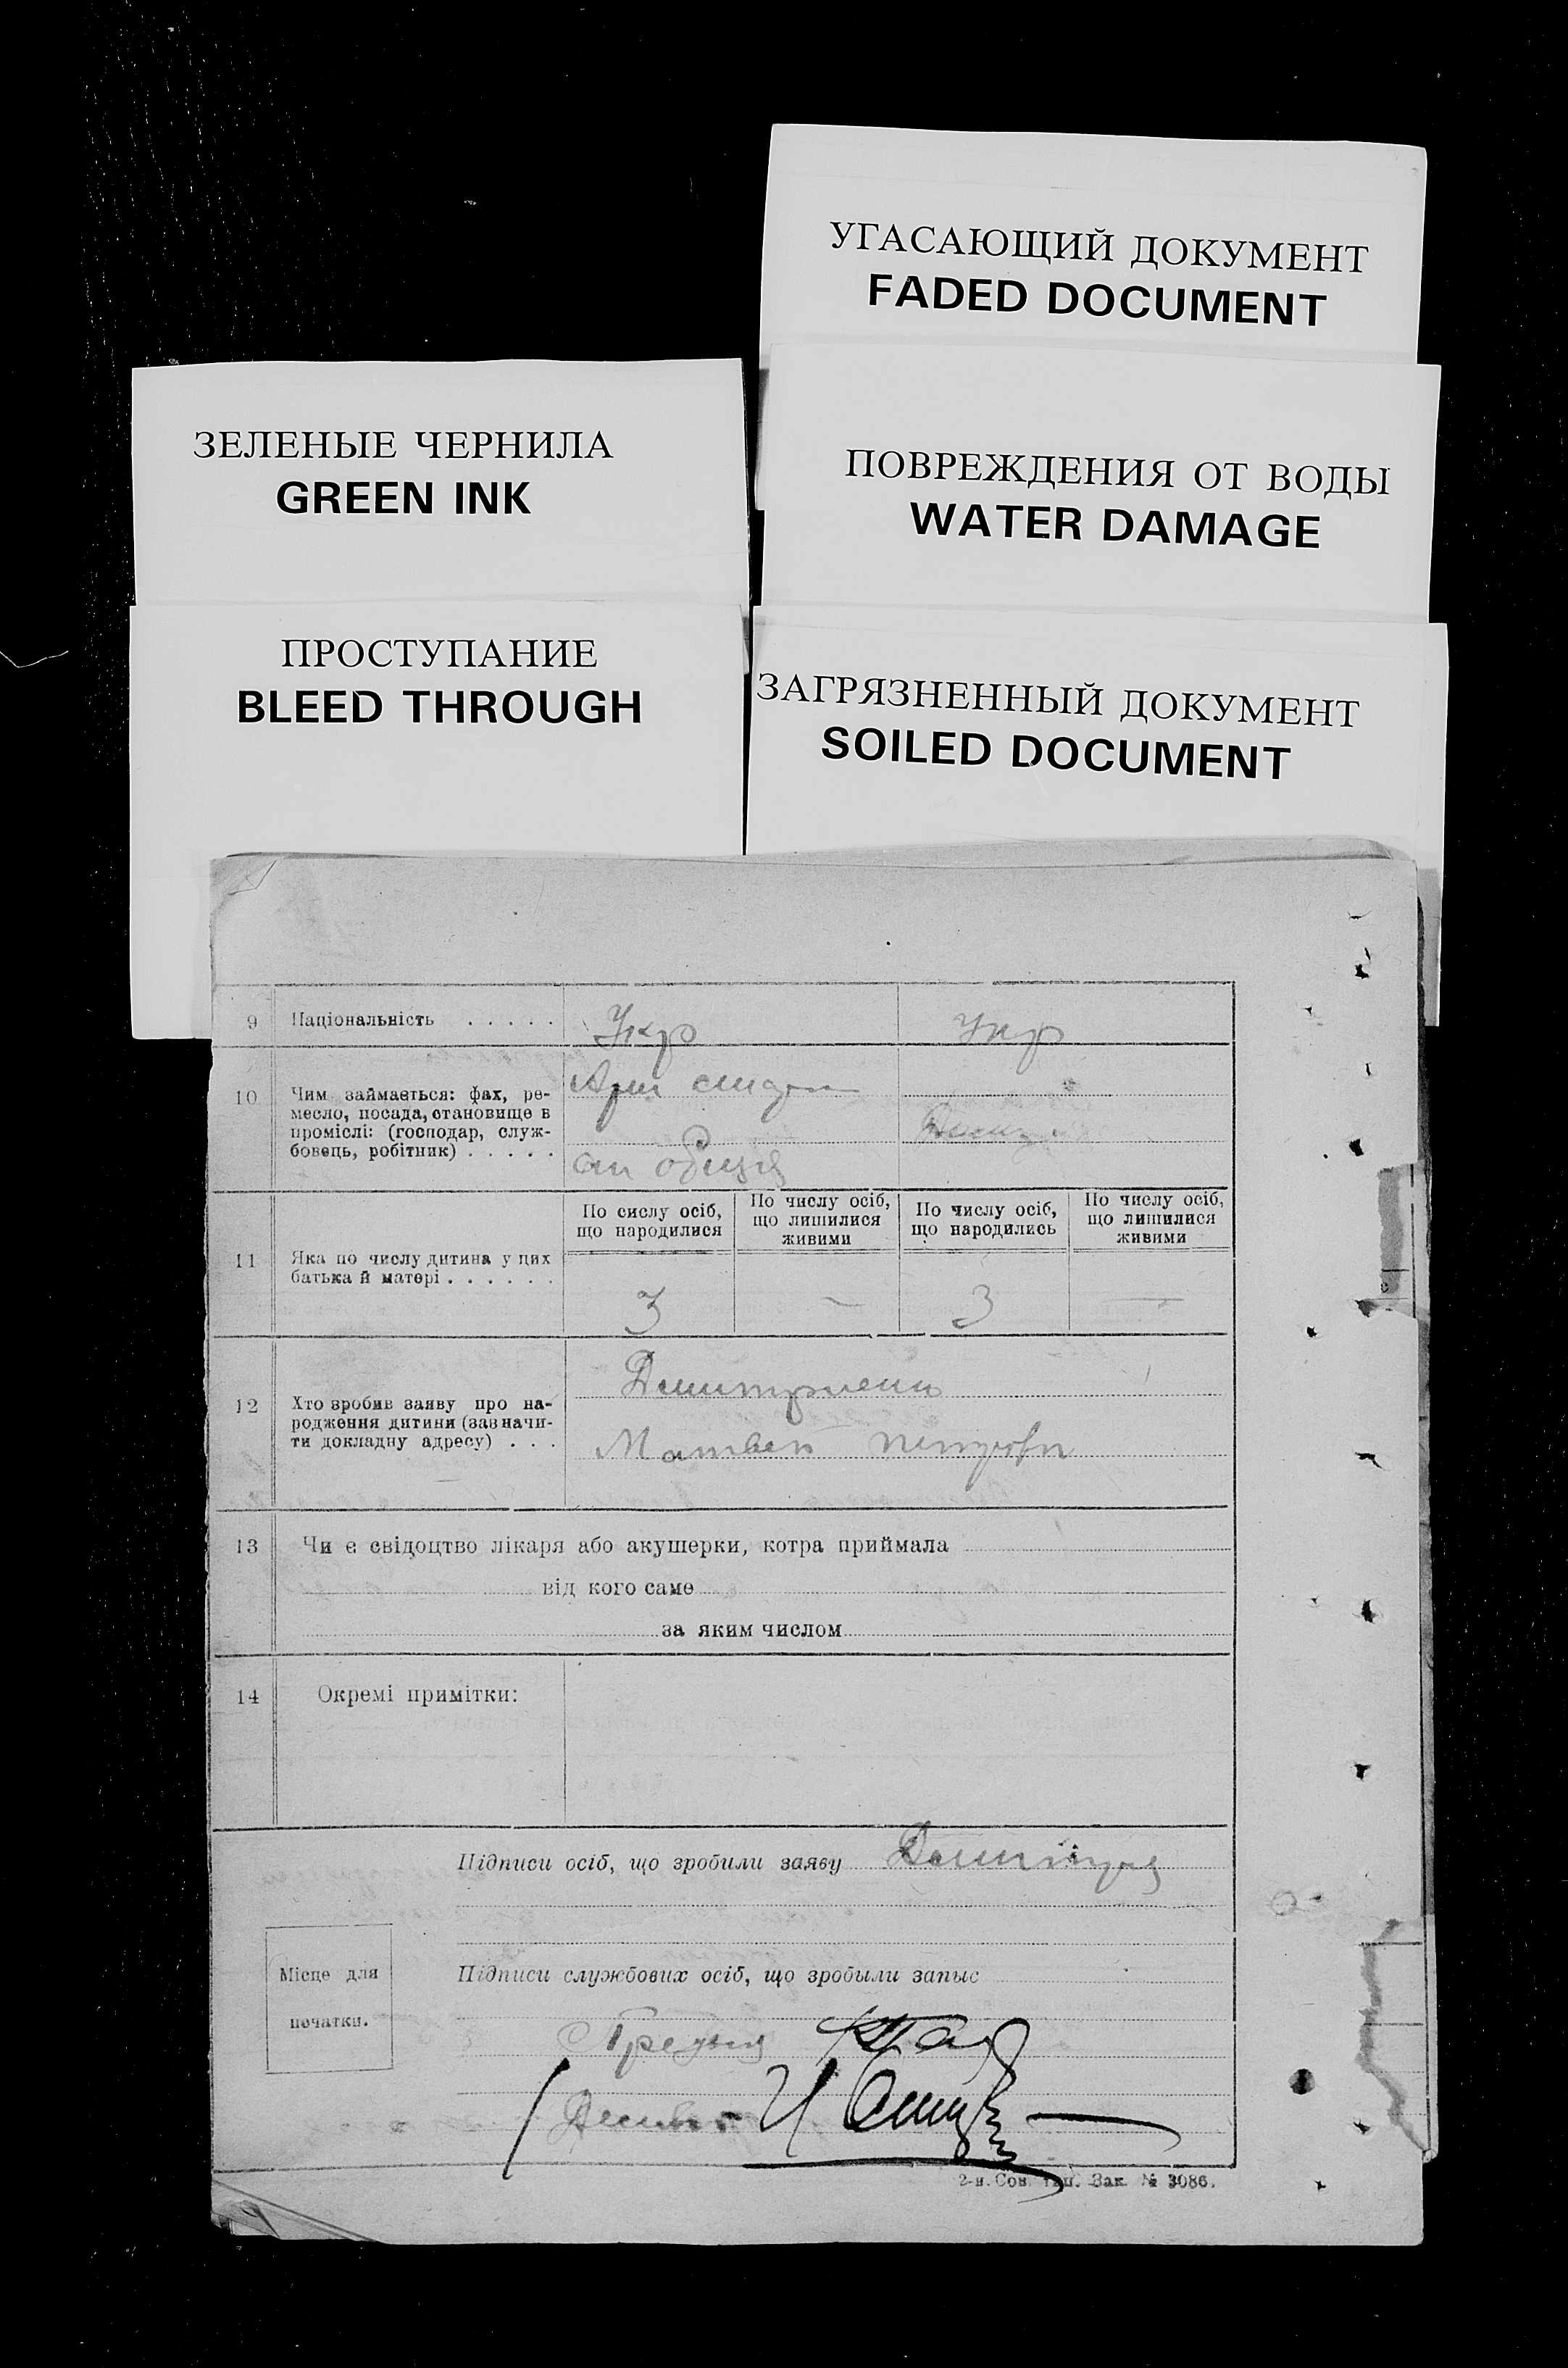 УГАСАЮЩИЙ ДОКУМЕНТ
FADED DOCUMENT
ЗЕЛЕНЫЕ ЧЕРНИЛА
GREEN INK
ПОВРЕЖДЕНИЯ ОТ ВОДЫ
WATER DAMAGE
ПРОСТУПАНИЕ
BLEED THROUGH
ЗАГРЯЗНЕННЫЙ ДОКУМЕНТ
SOILED DOCUMENT
9 Національність . . . . . Укр Укр
10 Чим займається: фах, ре-
месло, посада, становище в
проміслі: (господар, служ-
бовець, робітник) . . . . .
По сислу осіб,
що народилися
По числу осіб,
що лишилися
живими
По числу осіб,
що народились
По числу осіб,
що лишилися
живими
11 Яка по числу дитина у цих
батька й матері . . . . . .
3 — 3 —
12 Хто зробив заяву про на-
родження дитини (зазначи-
ти докладну адресу) . . .
Матвей
13 Чи є свідоцтво лікаря або акушерки, котра приймала
від кого саме
за яким числом
14 Окремі примітки:
Підписи осіб, що зробили заяву
Місце для
печатки.
Підписи службових осіб, що зробыли запыс
2-я. Сов. тип. Зак. № 3086.